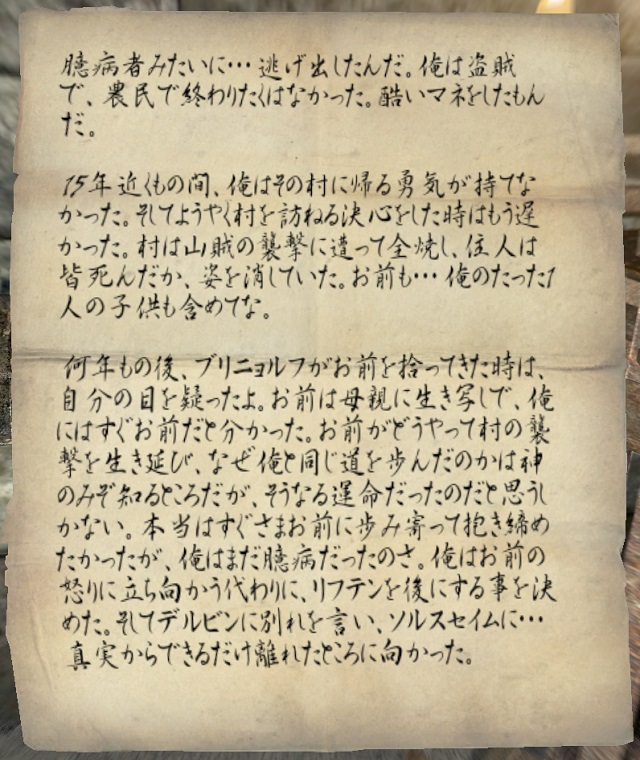 臆病者みたいに… 逃げ出したんだ。俺は盗賊
で、農民で終わりたくはなかった。酷いマネをしたもん
だ。
15年近くもの間、俺はその村に帰る勇気が持てな
かった。そしてようやく村を訪ねる決心をした時はもう遅
かった。村は山賊の襲撃に遭って全焼し、住人は
皆死んだか、姿を消していた。お前も… 俺のたった1
人の子供も含めてな。
何年もの後、ブリニョルフがお前を拾ってきた時は、
自分の目を疑ったよ。お前は母親に生き写しで、俺
にはすぐお前だと分かった。お前がどうやって村の襲
撃を生き延び、なぜ俺と同じ道を歩んだのかは神
のみぞ知るところだが、そうなる運命だったのだと思うし
かない。本当はすぐさまお前に歩み寄って抱き締め
たかったが、俺はまだ臆病だったのさ。俺はお前の
怒りに立ち向かう代わりに、リフテンを後にする事を決
めた。そしてデルビンに別れを言い、ソルスセイムに…
真実からできるだけ離れたところに向かった。